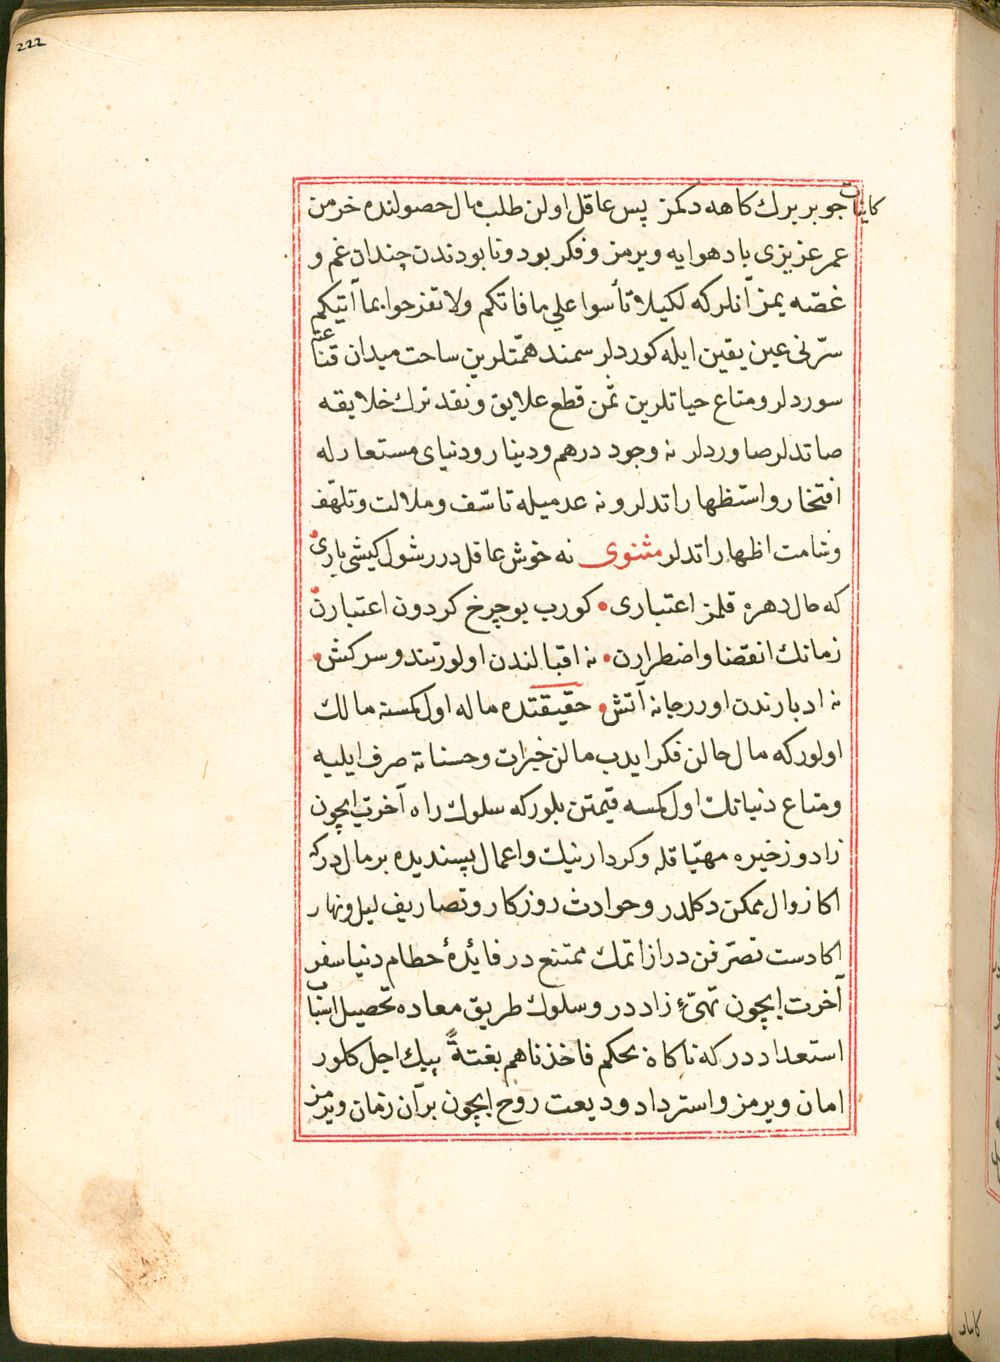 222
كاينات جو بر برك كاهه دكمز پس عاقل اولن طلب مال حصولنده خرمن
عمر عزيزى باد هوايه ويرمز و فكر بود و نابودندن چندان غم و
غصّه يمز آنلركه لكيلا تأسوا على ما فاتكم ولا تفرحوا بما آتيكم
سرّنى عين يقين ايله كوردلر سمند همّتلرين ساحت ميدان قناعته
سوردلر و متاع حياتلرين ثمن قطع علايق و نقد ترك خلايقه
صاتدلر صاوردلر نه وجود درهم و دينار و دنياى مستعارله
افتخار و استظهار اتدلر و نه عدميله تاسّف و ملالت و تلهّف
و شامت اظهار اتدلر مثنوى نه خوش عاقل درر شول كيشى يارى
كه مال دهره قلمز اعتبارى كورب بو چرخ كردون اعتبارن
زمانك انقضا و اضطرارن نه اقبالندن اولور تند و سركش
نه ادبارندن اورر جانه آتش حقيقتده ماله اول كمسنه مالك
اولوركه مال حالن فكر ايدب مالن خيرات و حسناته صرف ايليه
و متاع دنيانك اول كمسه قيمتن بلوركه سلوك راه آخرت ايچون
زاد و زخيره مهيّا قله و كردار نيك و اعمال پسنديده بر مال دركه
اكا زوال ممكن دكلدر و حوادث روزكار و تصاريف ليل و نهار
اكا دست تصرّفن دراز اتمك ممتنع در فائدۀ حطام دنيا سفر
آخرت ايچون تهىّء زاد در و سلوك طريق معاده تحصيل اسباب
استعداد در كه ناكاه بحكم فاخذناهم بغتةً پيك اجل كلور
امان ويرمز و استرداد وديعت روح ايچون بر آن زمان ويرمز